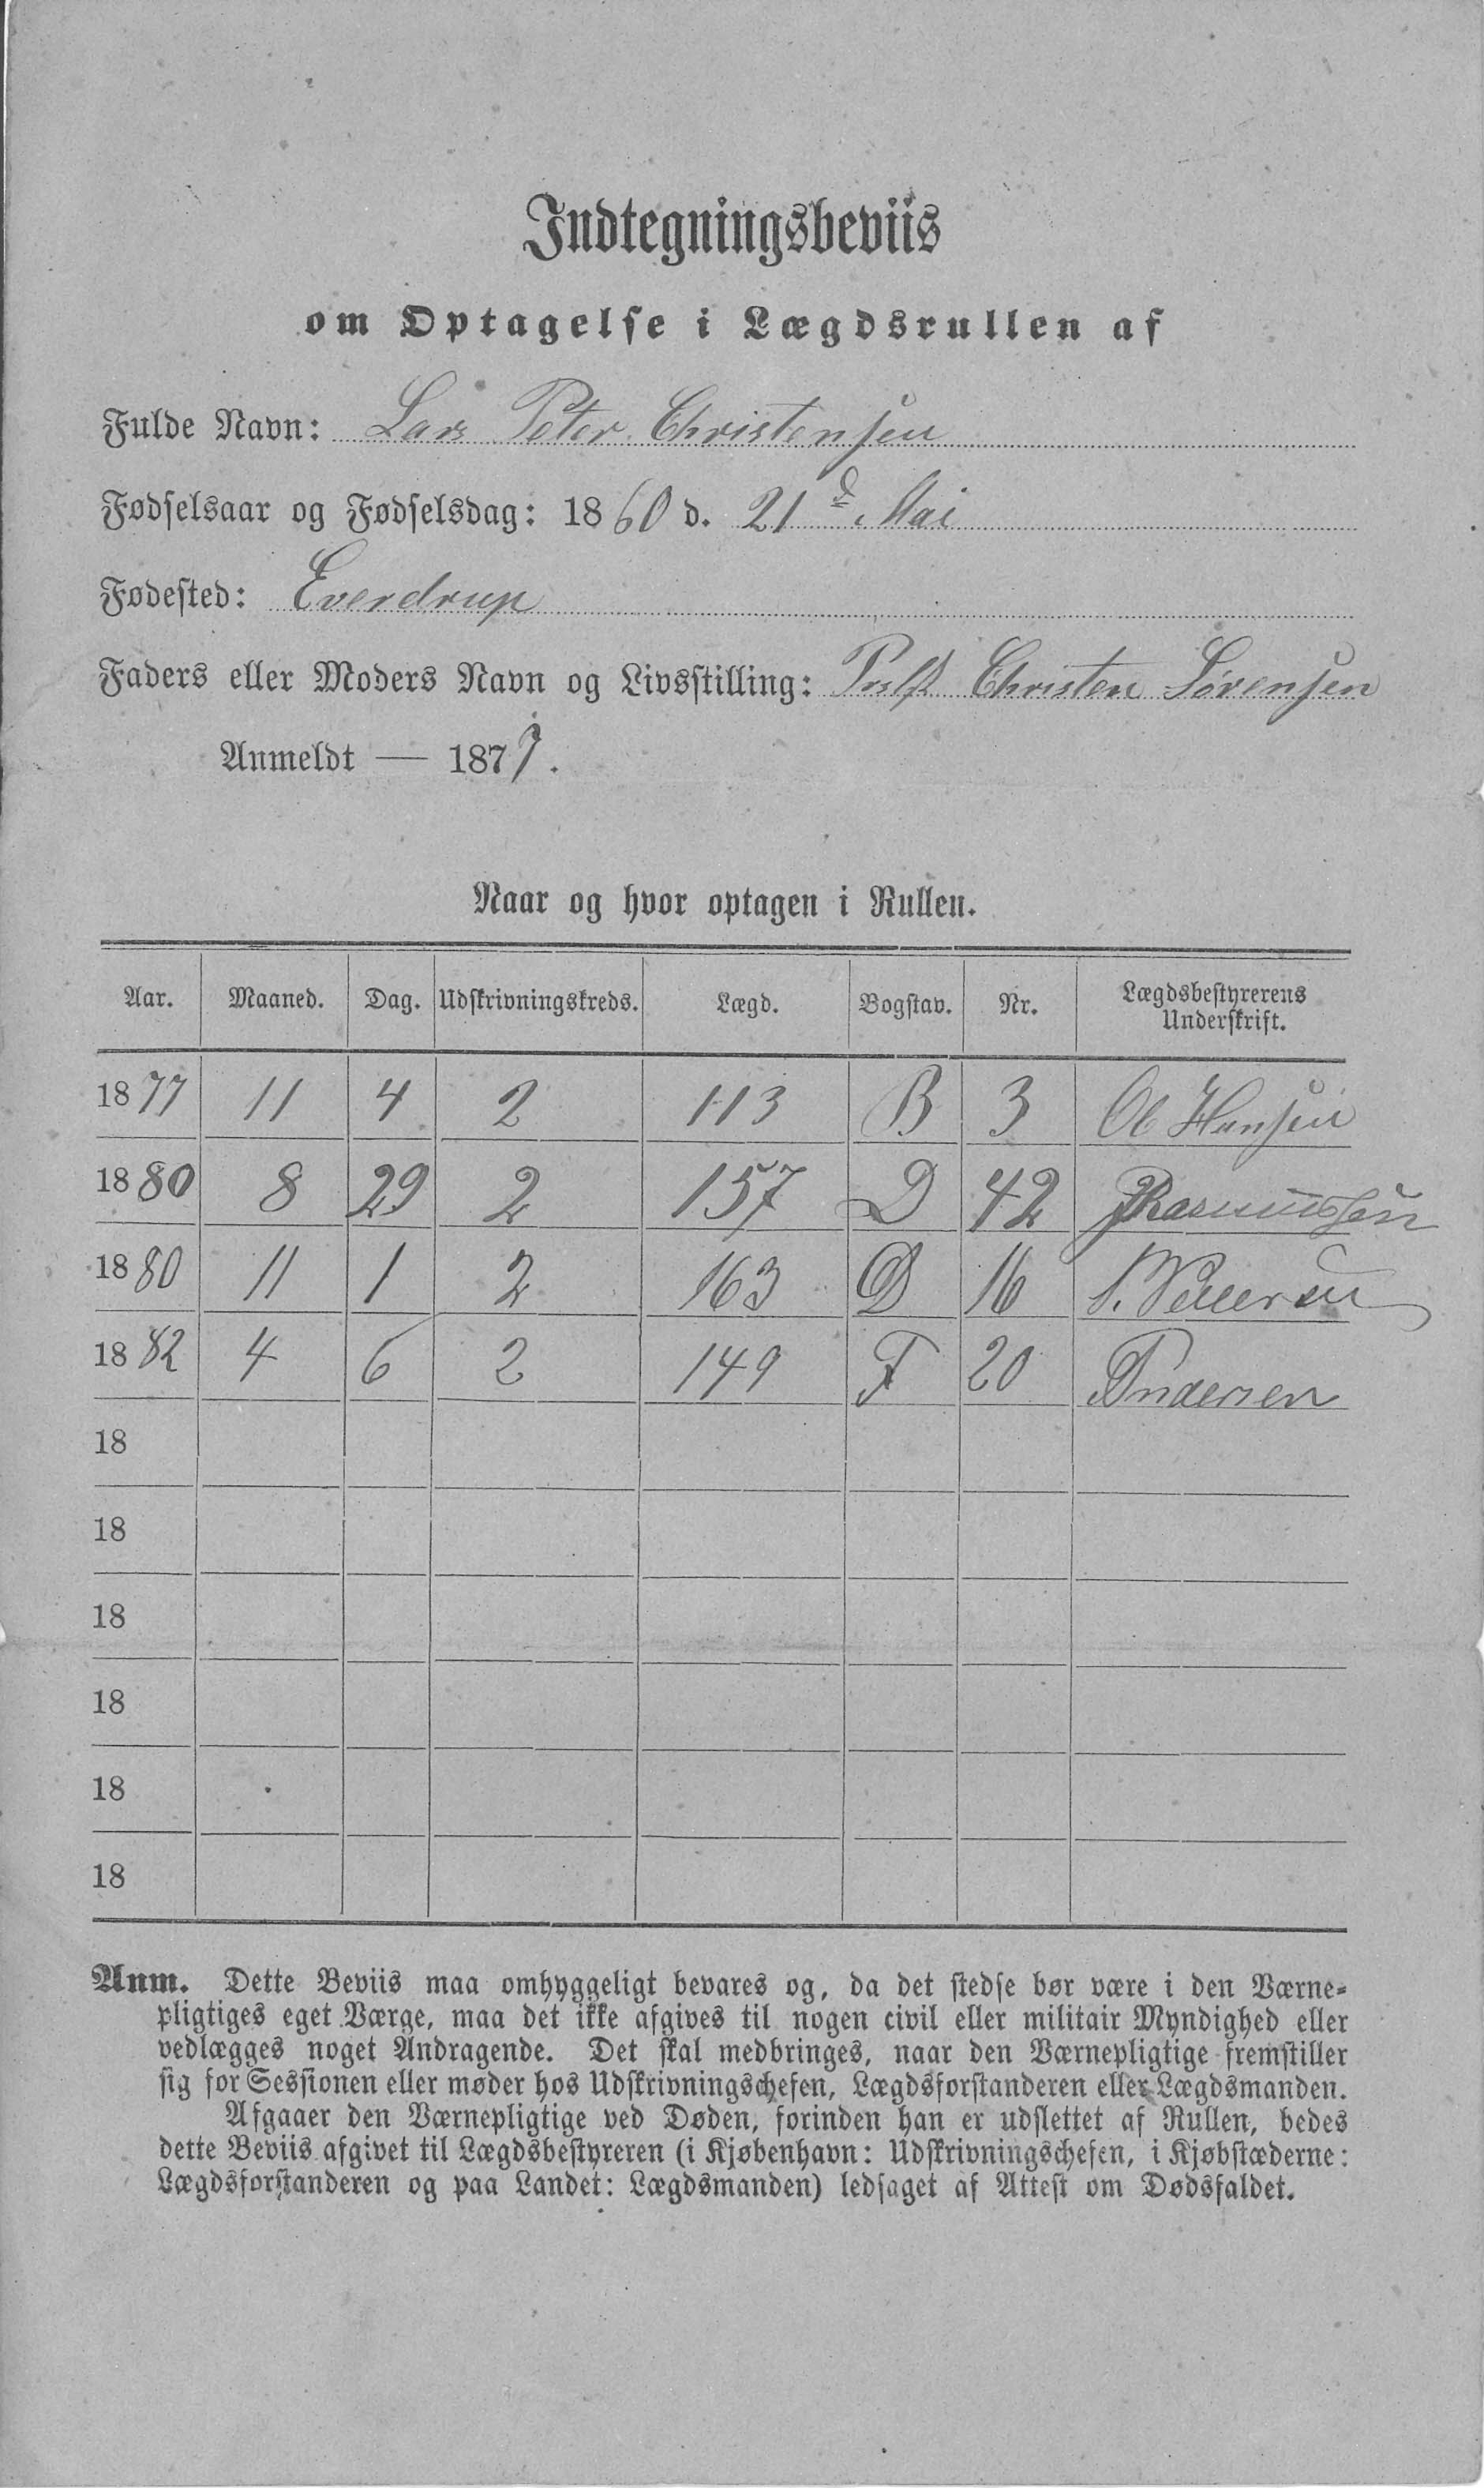 Indtegningsbeviis
om Optagelse i Lægdsrullen af
Fulde Navn: Lars Peter Christensen
Fødselsaar og Fødselsdag: 1860 d. 21d Mai
Fødested: Everdrup
Faders eller Moders Navn og Livsstilling: Christen Sørensen
Anmeldt — 1877.
Naar og hvor optagen i Rullen.
Aar. Maaned. Dag. Udskrivningskreds. Lægd. Bogstav. Nr. Lægdsbestyrerens Underskrift.
1877 11 4 2 113 B 3 Ol Hansen
1880 8 29 2 157 D 42 Rasmussen
1880 11 1 2 163 D 16
1882 4 6 2 149 F 20 Andersen
18
18
18
18
18
18
Anm. Dette Beviis maa omhyggeligt bevares og, da det stedse bør være i den Værne-
pligtiges eget Værge, maa det ikke afgives til nogen civil eller militair Myndighed eller
vedlægges noget Andragende. Det skal medbringes, naar den Værnepligtige fremstiller
sig for Sessionen eller møder hos Udskrivningschefen, Lægdsforstanderen eller Lægdsmanden.
Afgaaer den Værnepligtige ved Døden, forinden han er udslettet af Rullen, bedes
dette Beviis afgivet til Lægdsbestyreren (i Kjøbenhavn: Udskrivningschefen, i Kjøbstæderne:
Lægdsforstanderen og paa Landet: Lægdsmanden) ledsaget af Attest om Dødsfaldet.